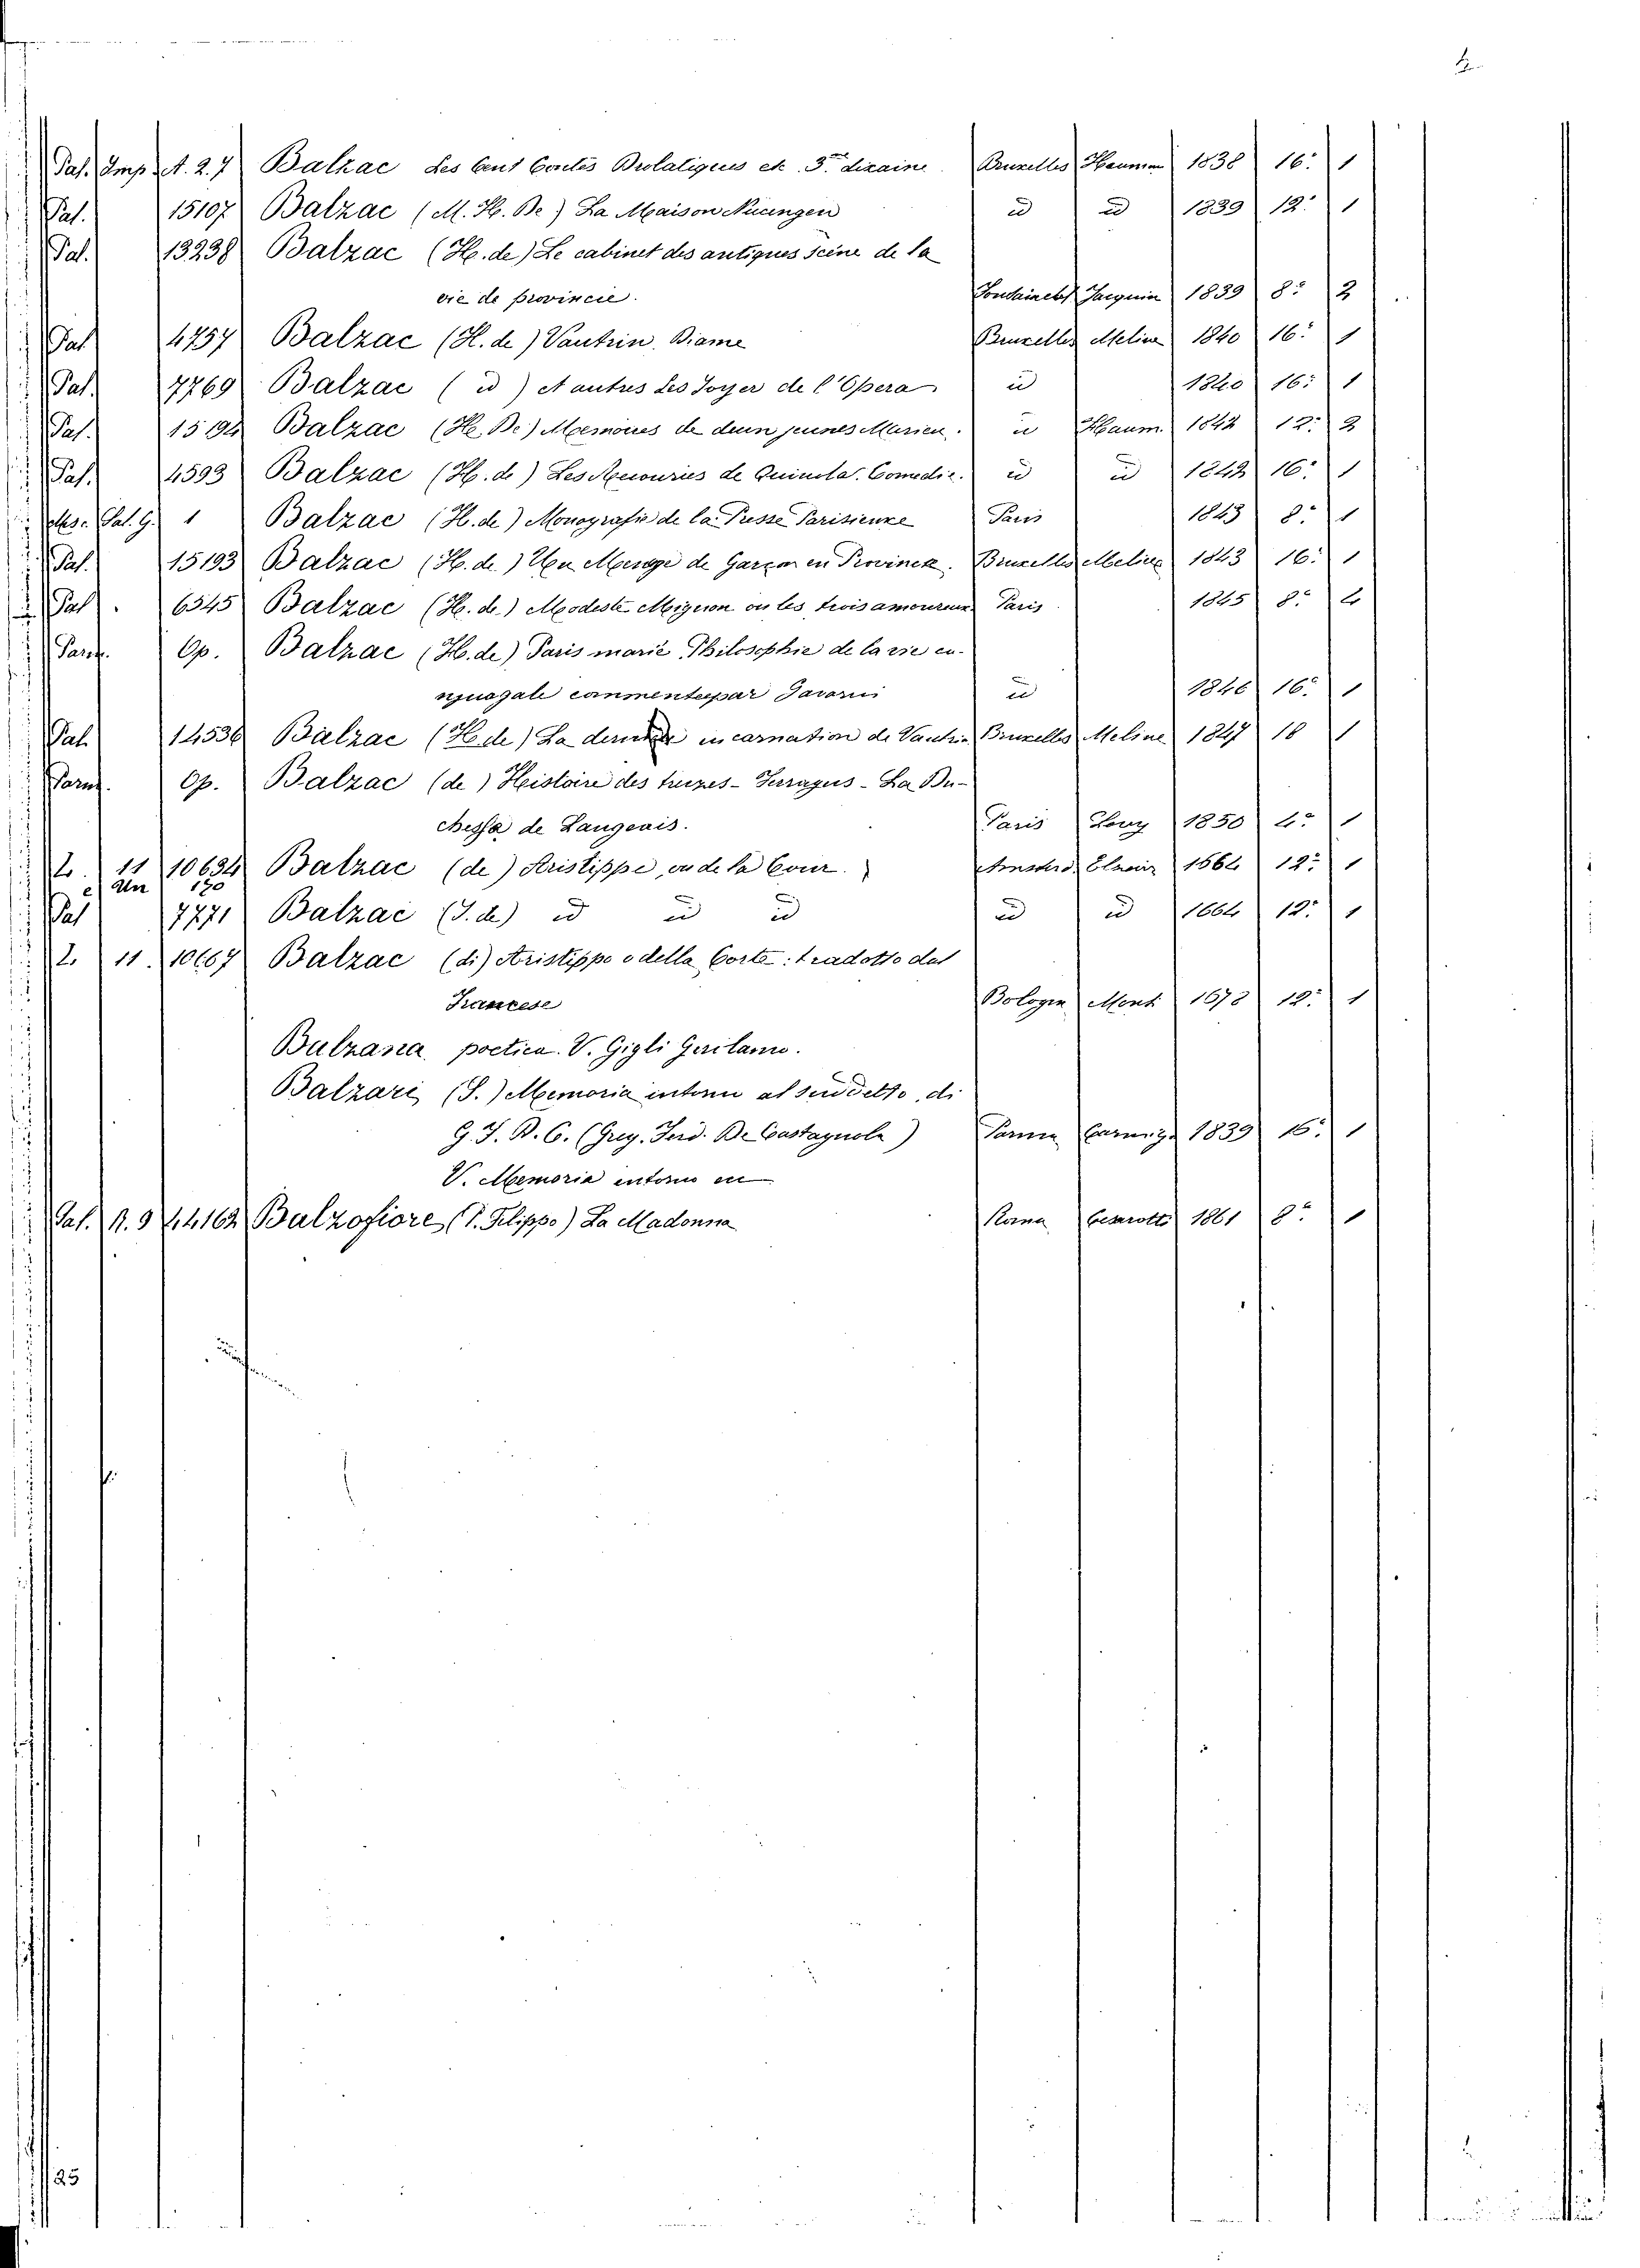 Pal. Imp. A. 2. 7 Balzac Les Cent Contes Drolatiques etc. 3.me dixaine. Bruxelles Hauman 1838 16.° 1
Pal. 15107 Balzac (M. H. De) La Maison Nucingen id id 1839 12.° 1
Pal. 13238 Balzac (H. de) Le cabinet des antiques scène de la
vie de provincie. Jacquin 1839 8.° 2
Pal. 4757 Balzac (H. de) Vautrin. Drame Bruxelles Meline 1840 16.° 1
Pal. 7769 Balzac ( id ) et autres Les foyer de l'Opera id 1840 16.° 1
Pal. 15194 Balzac (H. De) Memoires de deux jeunes Mariées. id Haum. 1842 12.° 2
Pal. 4593 Balzac (H. de) Les Ressources de Quinola. Comedie. id id 1842 16.° 1
Pal. G. 1 Balzac (H. de) Monografie de la Presse Parisienne Paris 1843 8.° 1
Pal. 15193 Balzac (H. de) Un Menage de Garçon en Province. Bruxelles Meline 1843 16.° 1
Pal. 6345 Balzac (H. de) Modeste Mignon ou les trois amoureux Paris 1845 8.° 4
Parm. Op. Balzac (H. de) Paris marié Philosophie de la vie co-
njugale commentée par Gavarni id 1846 16.° 1
Pal. 14536 Balzac (H. de) La derniere incarnation de Vautrin Bruxelles Meline 1847 18 1
Parm. Op. Balzac (de) Histoire des treizes - Ferragus - La Du-
chesse de Langeais. Paris 1850 4.° 1
11 10634 Balzac (de) Aristippe, ou de la Cour. Amsterd. Elzevir 1664 12.° 1
Pal 7771 Balzac (J. de) id id id id id 1664 12.° 1
11. 10667 Balzac (di) Aristippo o della Corte: tradotto dal
Francese Bologna Mont. 1678 12.° 1
Balzana poetica. V. Gigli Gerilamo.
Balzari (S.) Memoria intorno al suddetto, di
G. F. D. C. (Greg. Ferd. De Castagnola) Parma Carmig. 1839 16.° 1
V. Memoria intorno ec
Pal. 14162 Balzofiore (P. Filippo) La Madonna Roma Cesaretti 1861 8.° 1
25